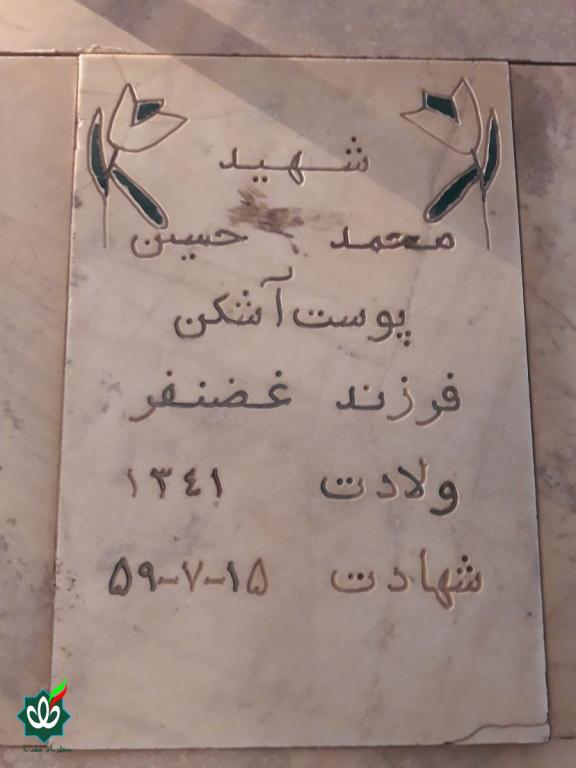 شهید
محمد حسین
پوست آشکن
فرزند غضنفر
ولادت ۱۳٤۱
شهادت ۱۵-۷-۵۹